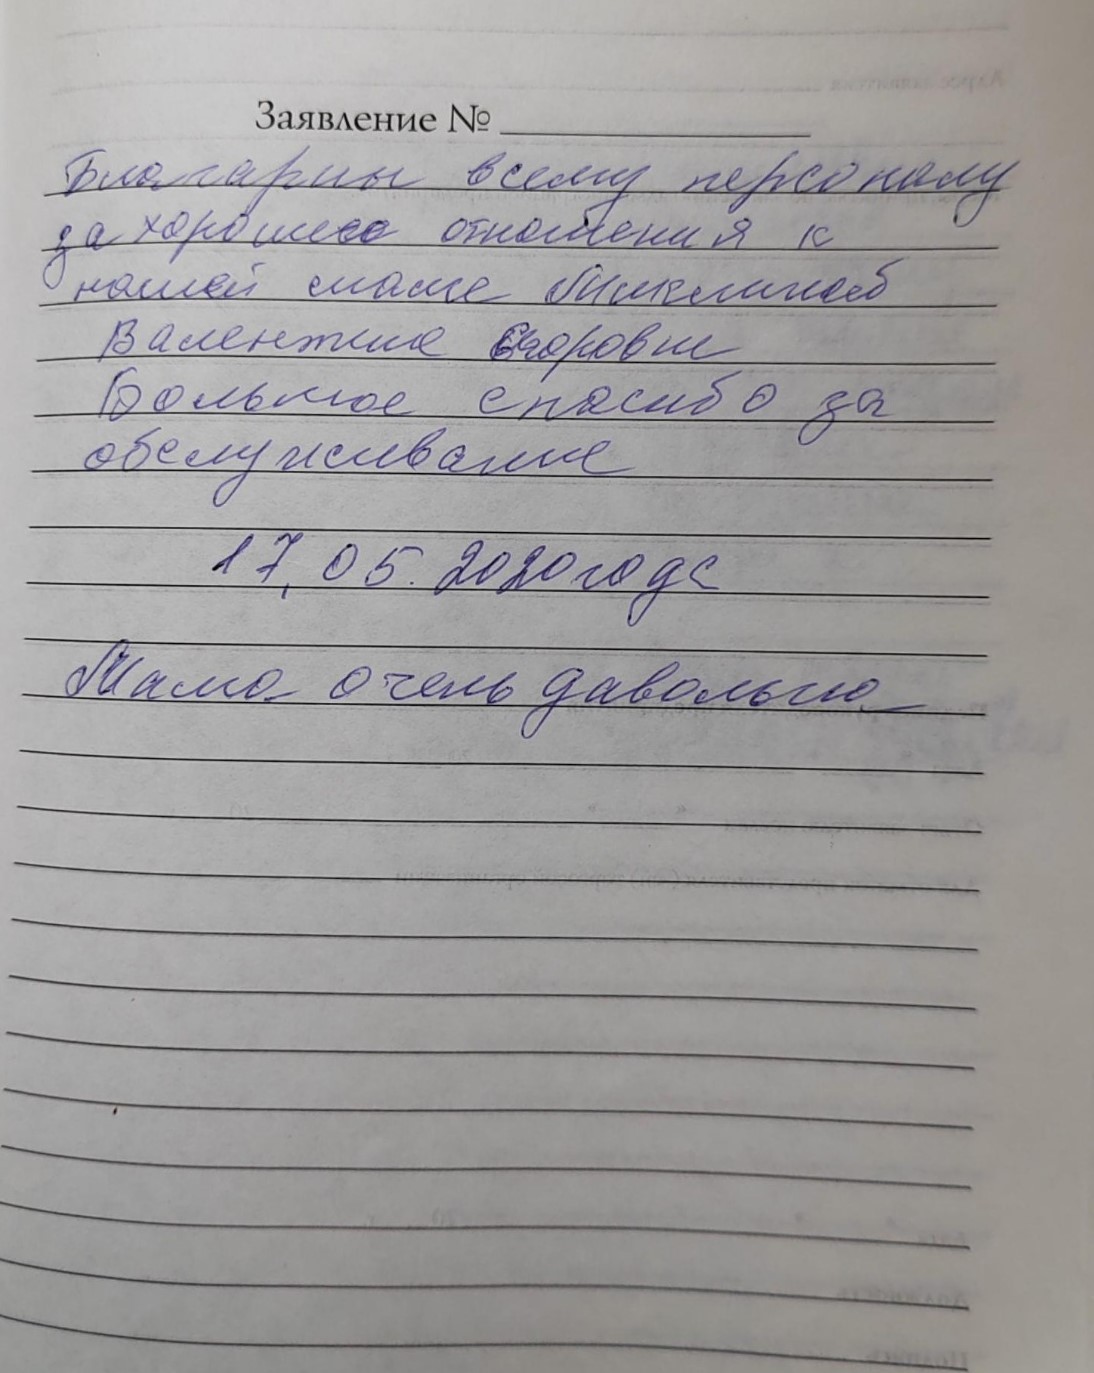 Заявление №
Благарны всему персоналу
за хорошее отношения к
нашей маме
Валентине Егоровне
Большое спасибо за
обслуживание
17.05.2020 года
Мама очень давольна